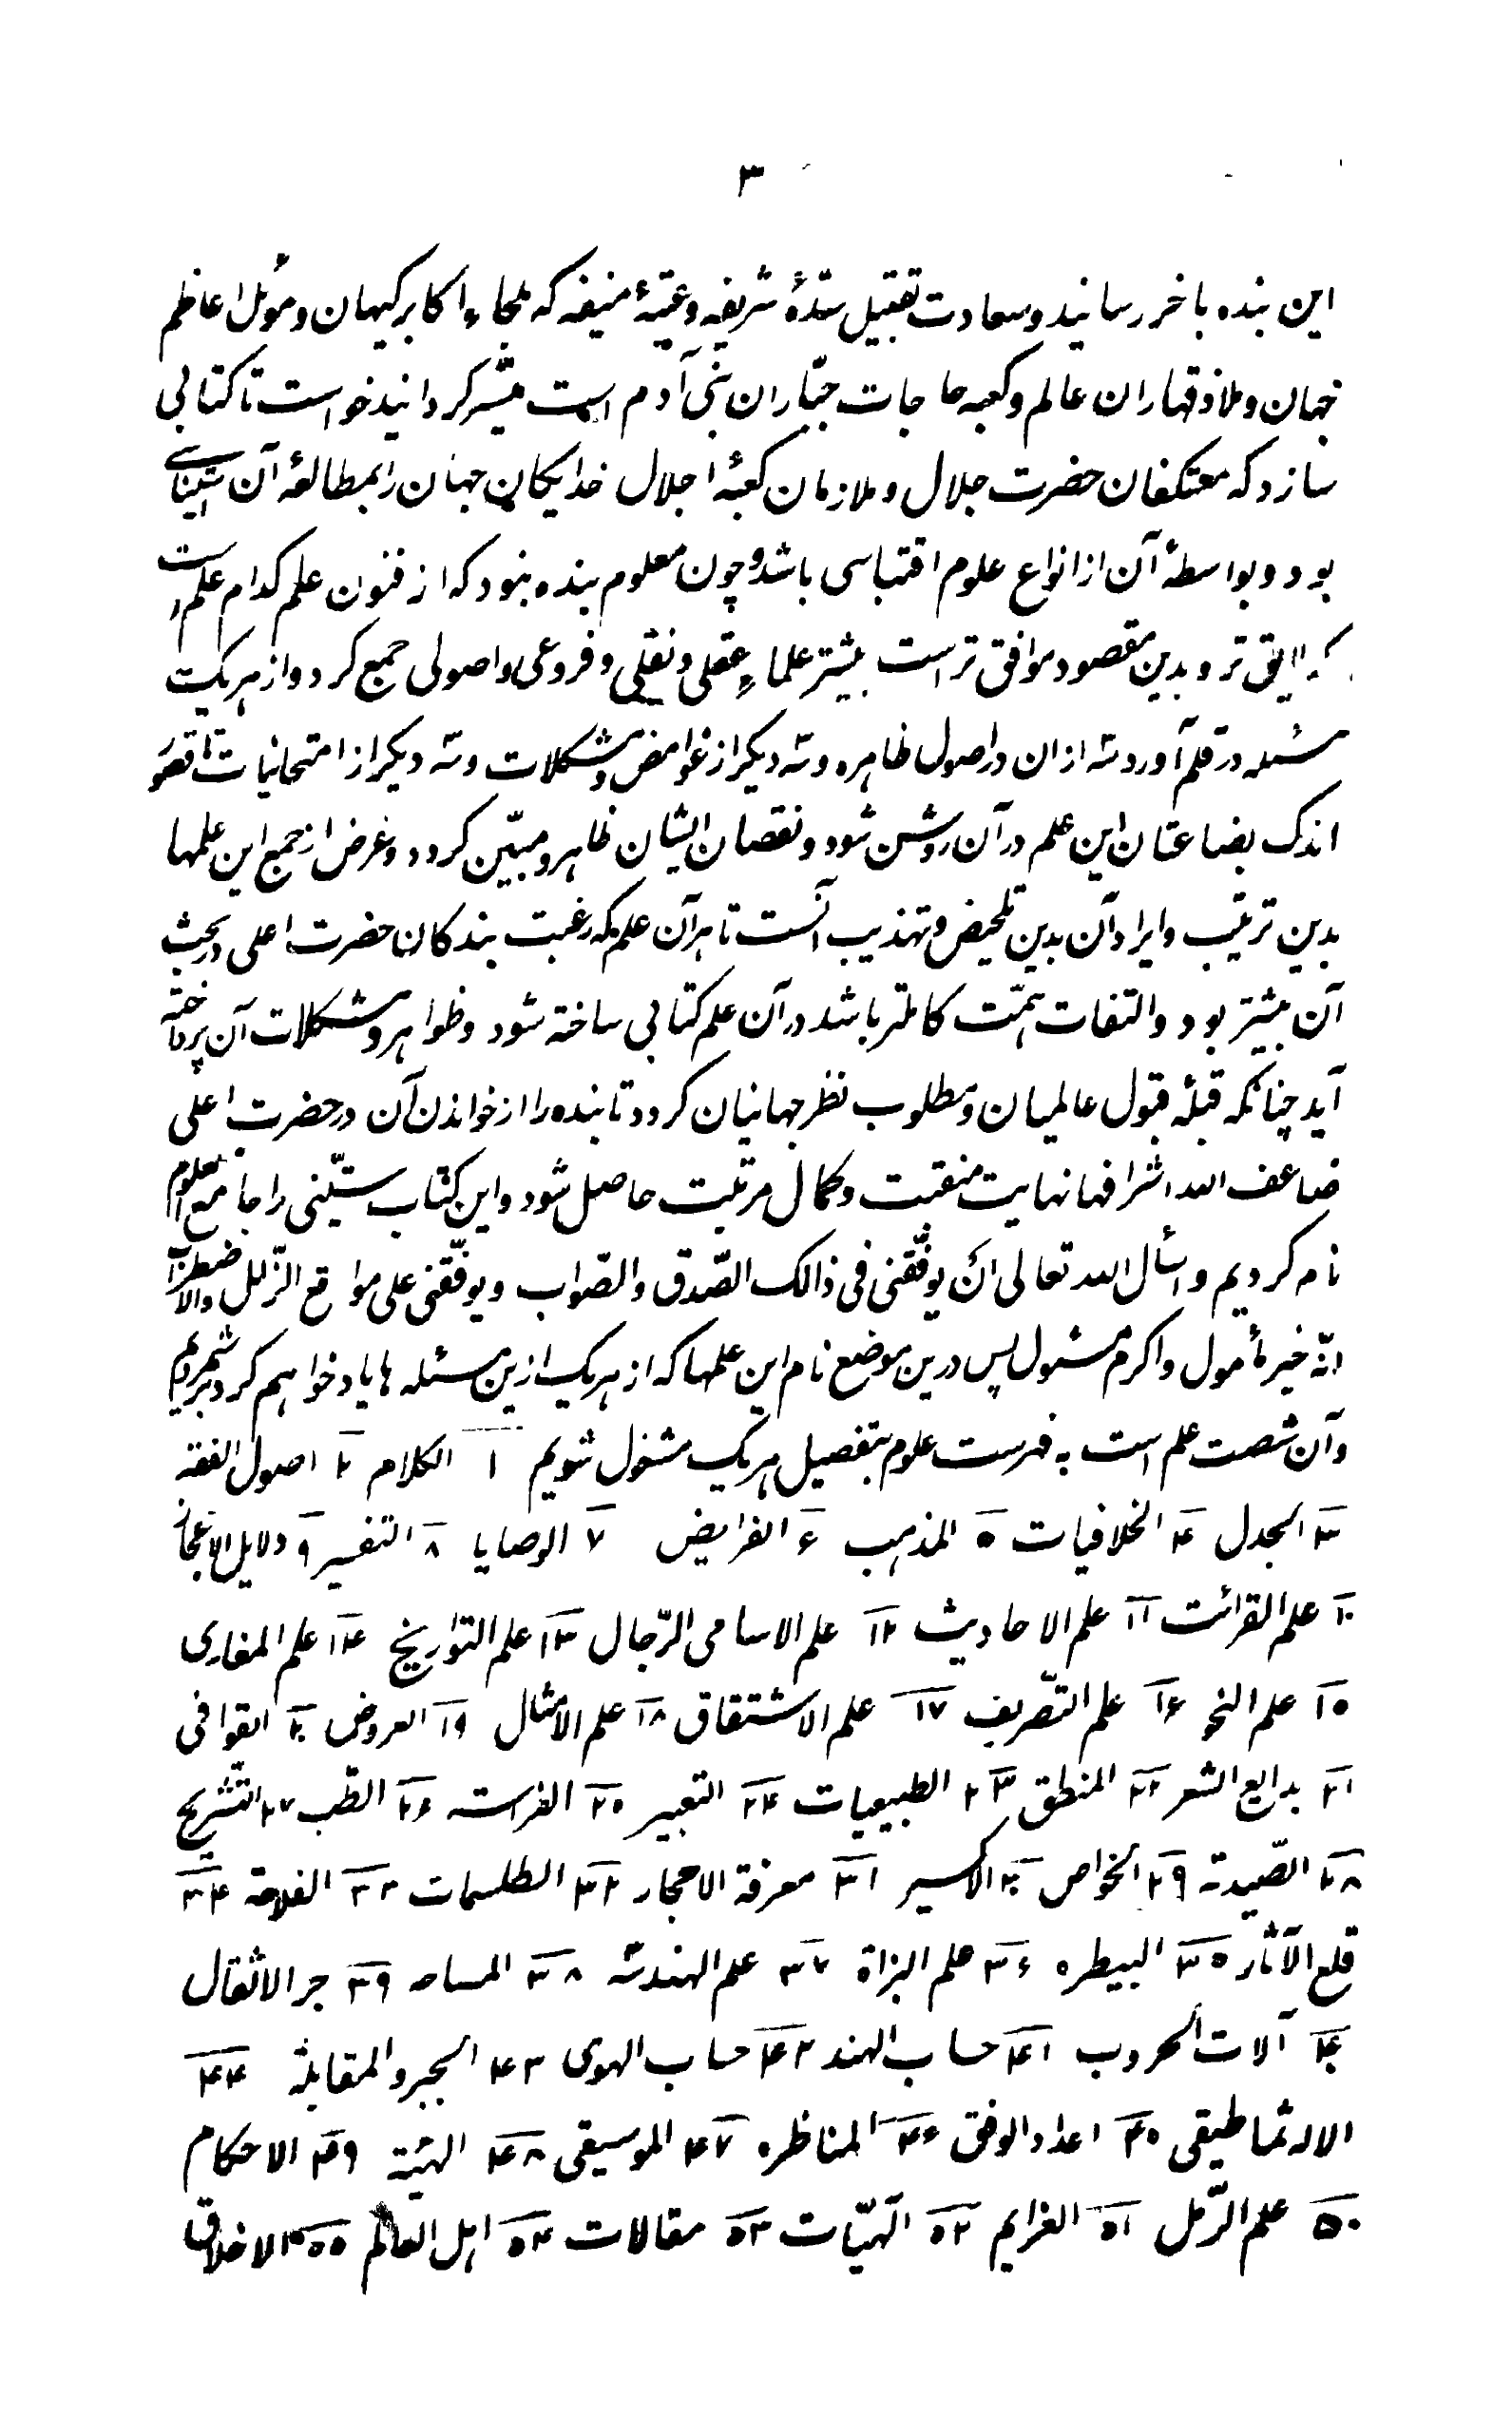 ۳
این بنده باخر رسانید و سعادت تقبیل سدّهٔ شریفه و عتبهٔ منیفه که ملجاء اکابر کیهان و موئل اعاظم
جهان و ملاذ قهاران عالم و کعبه حاجات جبّاران بنی آدم است میّسر کردانید خواست تا کتابی
سازد که معتکفان حضرت جلال و ملازمان کعبهٔ اجلال خدایکان جهان را بمطالعهٔ آن استیناسی
بود و بواسطهٔ آن از انواع علوم اقتباسی باشد و چون معلوم بنده نبود که از فنون علم کدام علم است
که لایق تر و بدین مقصود موافق تر است بیشتر علماء عقلی و نقلی و فروعی و اصولی جمع کرد و از هریک
مسئله در قلم آورد سه ازان در اصول ظاهره و سه دیکر از غوامض و مشکلات و سه دیکر از امتحانیات تا قصور
اندک بضاعتان این علم در آن روشن شود و نقصان ایشان ظاهر و مبیّن کردد و غرض از جمع این علمها
بدین ترتیب و ایراد آن بدین تلخیص و تهذیب آنست تا هر آن علم که رغبت بندکان حضرت اعلی در بحث
آن بیشتر بود و التفات همّت کاملتر باشد در آن علم کتابی ساخته شود و ظواهر و مشکلات آن پرداخته
آید چنانکه قبلهٔ قبول عالمیان و مطلوب نظر جهانیان کردد تا بنده را از خواندن آن در حضرت اعلی
ضاعف الله اشرافها نهایت منقبت و کمال مرتبت حاصل شود و این کتاب ستّینی را جامع العلوم
نام کردیم و اسأل الله تعالی ان یوفّقنی فی ذالک الصّدق والصّواب و یوفّقنی علی مواقع الزّلل والاضطراب
انّه خیر مأمول و اکرم مسئول پس درین موضع نام این علمها که از هریک ازین مسئله ها یاد خواهم کرد بر شمردیم
و آن شصت علم است به فهرست علوم بتفصیل هریک مشغول شویم ۱ الکلام ۲ اصول الفقه
۳ الجدل ۴ الخلافیات ۵ المذهب ۶ الفرایض ۷ الوصایا ۸ التفسیر ۹ دلایل الاعجاز
۱۰ علم القرائت ۱۱ علم الاحادیث ۱۲ علم الاسامی الرّجال ۱۳ علم التواریخ ۱۴ علم المغازی
۱۵ علم النحو ۱۶ علم التّصریف ۱۷ علم الاشتقاق ۱۸ علم الامثال ۱۹ العروض ۲۰ القوافی
۲۱ بدایع الشعر ۲۲ المنطق ۲۳ الطبیعیات ۲۴ التعبیر ۲۵ الفراسته ۲۶ الطّب ۲۷ التّشریح
۲۸ الصّیدنة ۲۹ الخواص ۳۰ الاکسیر ۳۱ معرفة الاحجار ۳۲ الطلسمات ۳۳ الفلاحة ۳۴
قلع الآثار ۳۵ البیطره ۳۶ علم البزاة ۳۷ علم الهندسّه ۳۸ المساحه ۳۹ جر الاثقال
۴۰ آلات الحروب ۴۱ حساب الهند ۴۲ حساب الهوی ۴۳ الجبر و المقابلة ۴۴
الارثماطیقی ۴۵ اعداد الوفق ۴۶ المناظره ۴۷ الموسیقی ۴۸ الهیئة ۴۹ الاحکام
۵۰ علم الرّمل ۵۱ العزایم ۵۲ الهیّات ۵۳ مقالات ۵۴ اهل العالم ۵۵ الاخلاق